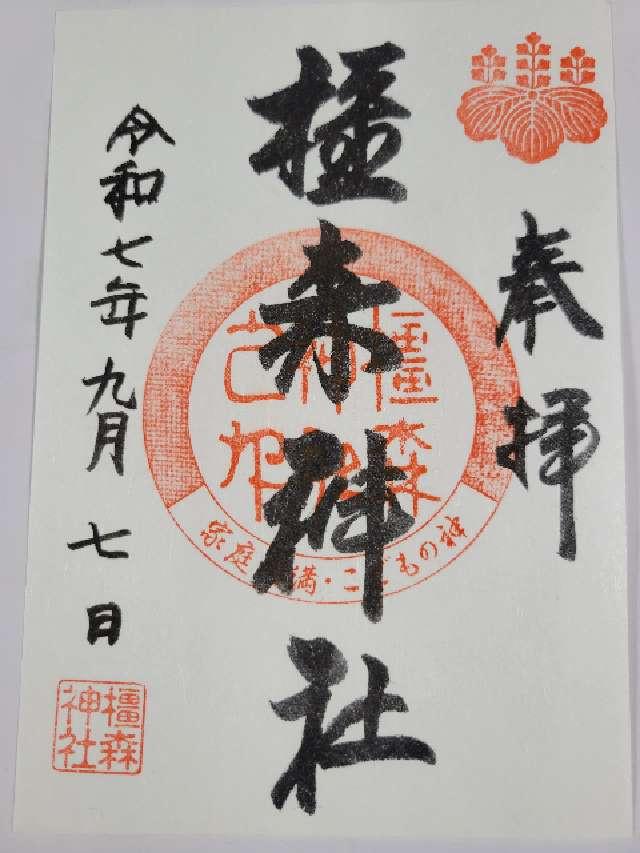 奉拝
橿森神社
令和七年九月七日
家庭円満・こどもの神
橿森
神社